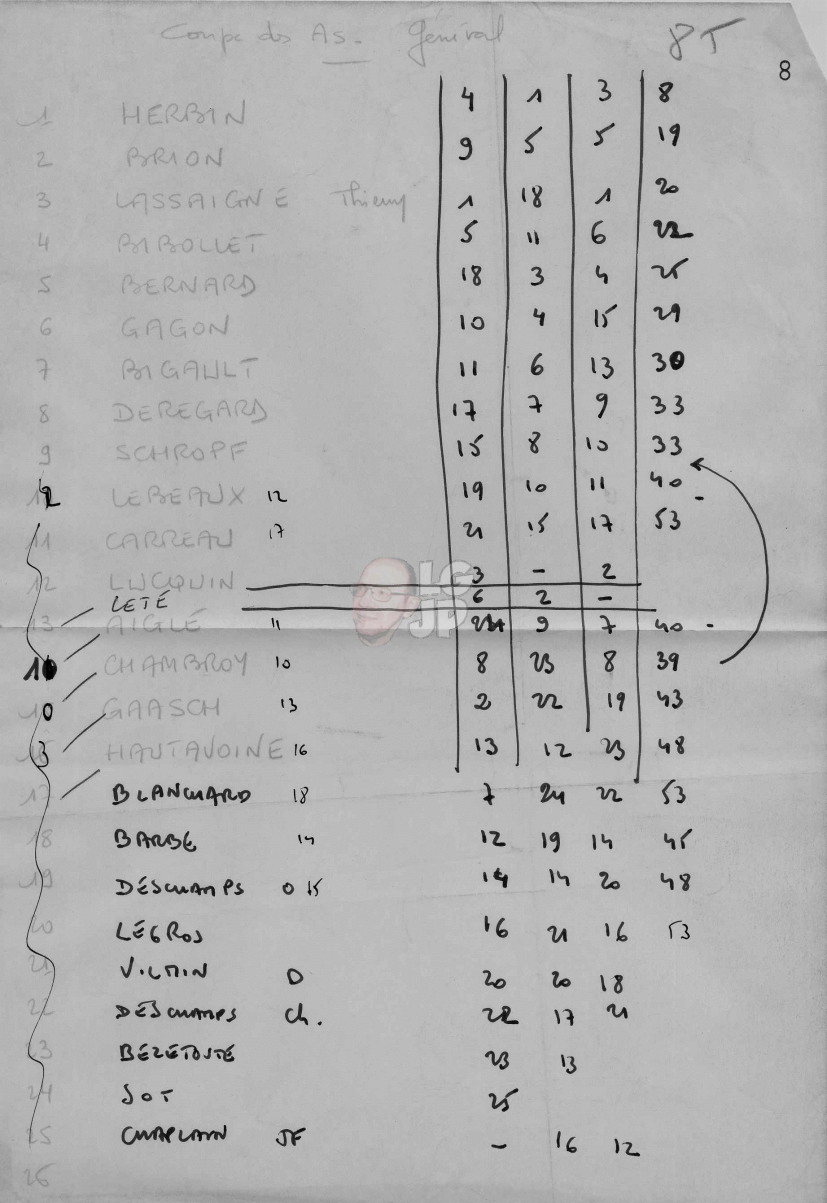 Coupe des As. Général 8T
8
1 HERBIN 4 1 3 8
2 BRION 9 5 5 19
3 LASSAIGNE Thierry 1 18 1 20
4 BIBOLLET 5 11 6 22
5 BERNARD 18 3 4 25
6 GAGON 10 4 15 29
7 BIGAULT 11 6 13 30
8 DEREGARD 17 7 9 33
9 SCHROPF 15 8 10 33
LEBEAUX 12 19 10 11 40 -
11 CARREAU 17 21 15 17 53
12 LUCQUIN 3 - 2
LETÉ 6 2 -
13 AIGLE 11 9 7 40 -
CHAMBROY 10 8 23 8 39
GAASCH 13 2 22 19 43
HAUTAVOINE 16 13 12 23 48
17 BLANCHARD 18 7 24 22 53
18 BARBE 14 12 19 14 45
19 DESCHAMPS O 15 14 14 20 48
20 LEGROS 16 21 16 53
21 VILMIN D 20 20 18
22 DESCHAMPS Ch. 22 17 21
23 BEZETOUTE 23 13
24 JOT 25
25 CHAPLAIN JF - 16 12
26
LGJP